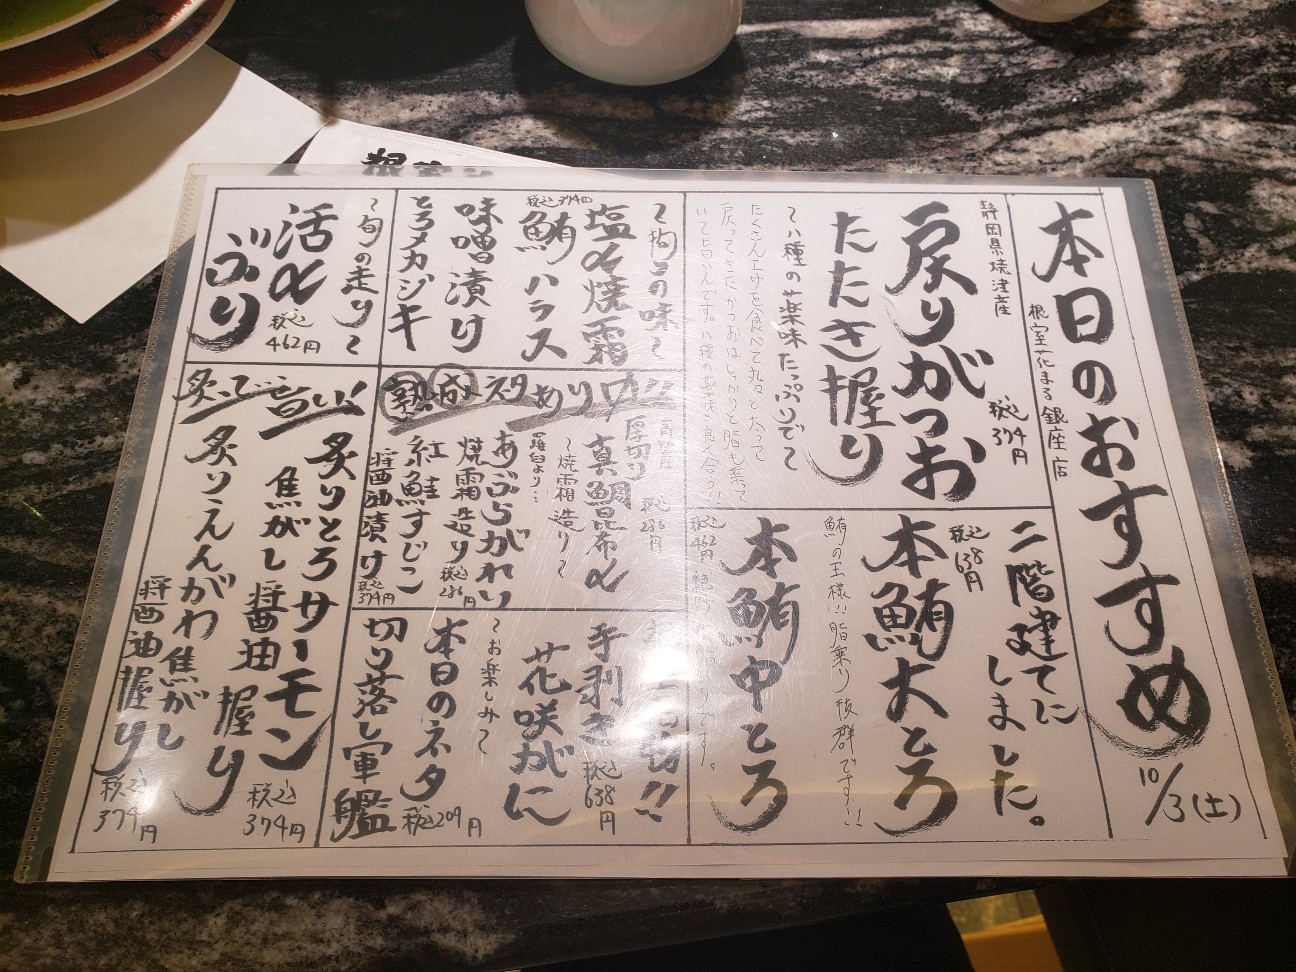 本日のおすすめ
根室花まる 銀座店
10/3(土)
静岡県焼津産
戻りがつお
税込374円
たたき握り
〜八種の薬味たっぷりで〜
たくさんエサを食べて丸々と太って
戻ってきたかつおはしっかりと脂も乗って
二階建てにしました。
本鮪大とろ
税込638円
鮪の王様!!脂乗り抜群です!!
本鮪中とろ
税込462円
〜拘りの味〜
塩〆焼霜
鮪ハラス
税込374円
味噌漬け
とろメカジキ
熟成ネタあり〼!!
厚切り
真鯛昆布〆
税込286円
〜焼霜造り〜
羅臼より…
あぶらがれい
焼霜造り
税込286円
紅鮭すじこ
醤油漬け
税込374円
手剥き
花咲がに
税込638円
〜お楽しみ〜
本日のネタ
切り落し軍艦
税込209円
〜旬の走り〜
活〆
ぶり
税込462円
炙って旨い!
炙りとろサーモン
焦がし醤油握り
税込374円
炙りえんがわ焦がし
醤油握り
税込374円